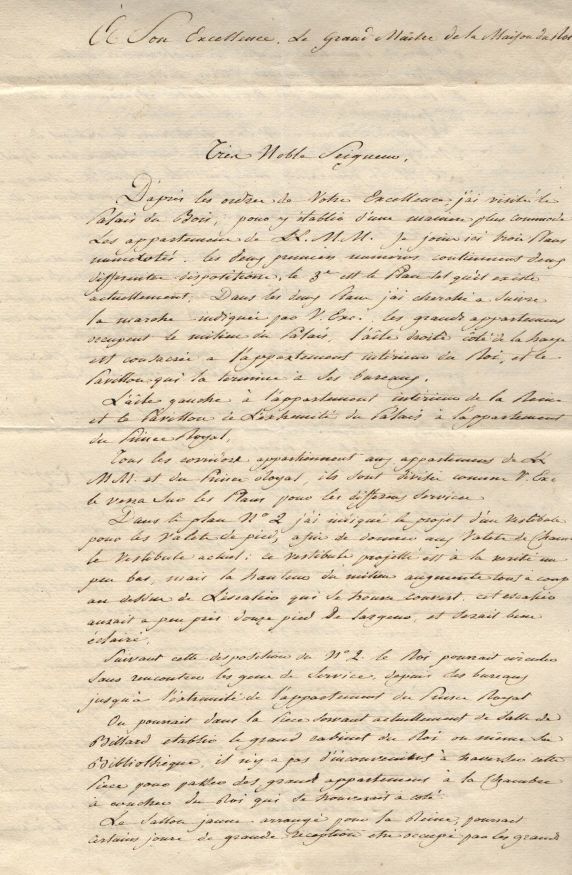 A Son Excellence, Le Grand Maître de la Maison du Roi
Tres Noble Seigneur,
D'après les ordres de Votre Excellence, j'ai visité le
Palais du Bois, pour y établir d'une manière plus commode
Les appartemens de LL. M.M. Je joins ici trois Plans
numérotés. les deux premiers numéros contiennent deux
différentes dispositions, le 3e est le Plan tel qu'il existe
actuellement. Dans les deux Plans j'ai cherché à Suivre
la marche indiquée par V. Exc. les grands appartemens
occupent le milieu du Palais, l'aile droite côté de la haye
est consacrée à l'appartement intérieur du Roi, et le
Pavillon qui la termine à ses bureaux.
L'aile gauche à l'appartement intérieur de la Reine
et le Pavillon de L'extremité du Palais à l'appartement
du Prince Royal.
Tous les corridors appartiennent aux appartemens de LL
MM. et du Prince Royal, ils sont divisés comme V. Exc
le verra sur les Plans pour les differens services
Dans le plan No 2 j'ai indiqué le projet d'un vestibule
pour les Valets de pied, afin de donner aux Valets de Cham
le Vestibule actuel: ce vestibule projetté est à la verité un
peu bas, mais la hauteur du milieu augmente tout à coup
au dessus de L'escalier qui se trouve couvert. cet escalier
aurait à peu près douze pied de largeur, et serait bien
éclairé.
Suivant cette disposition du No 2. le Roi pourrait circuler
sans rencontrer les gens de Service, depuis les bureaux
jusqu'à l'extremité de l'appartement du Prince Royal
On pourrait dans la Pièce servant actuellement de Salle de
Billard établir le grand cabinet du Roi ou même sa
Bibliothèque, il n'y a pas d'inconvenient à traverser cette
Pièce pour passer des grand appartemens à la Chambre
à coucher du Roi qui se trouverait à côté
Le Sallon jaune arrangé pour la Reine, pourrait
certains jours de grande réception etre occupé par les grands